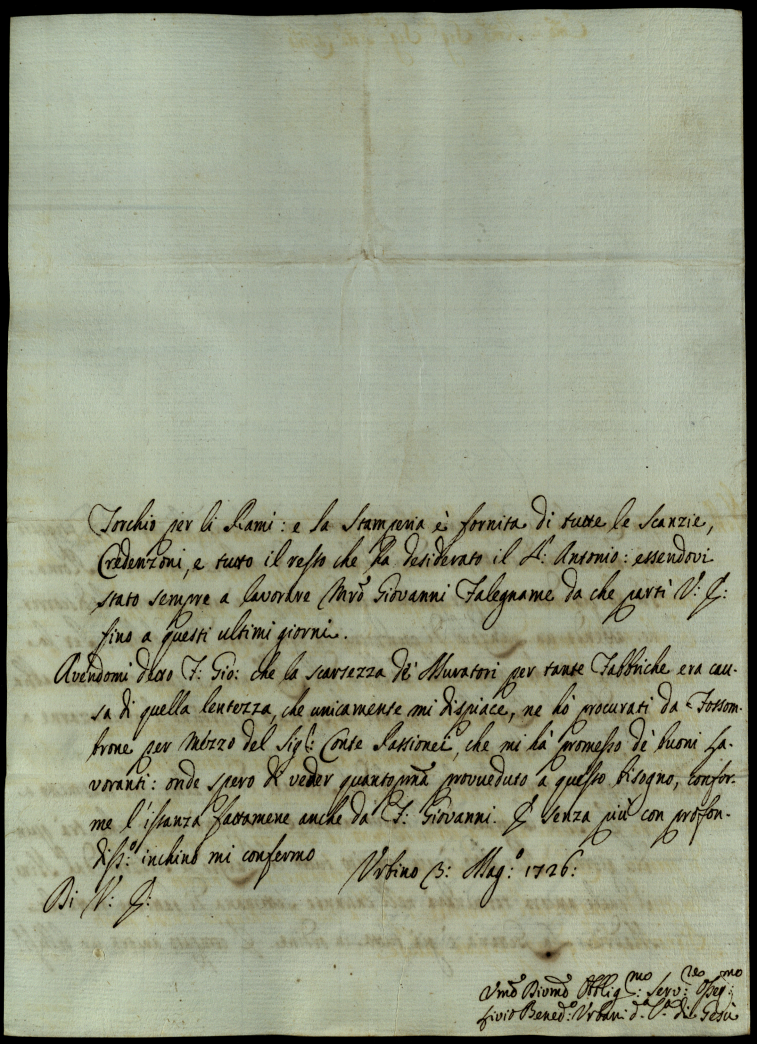 Torchio per li Rami: e la Stamperia è fornita di tutte le Scanzie,
Credenzoni, e tutto il resto che ha desiderato il Sr: Antonio: essendovi
stato sempre a lavorare Mrõ Giovanni Falegname da che partì V: E:
fino a questi ultimi giorni.
Avendomi detto F: Gio: che la scarsezza de' Muratori per tante Fabbriche era cau-
sa di quella lentezza, che unicamente mi dispiace, ne hò procurati da Fossom-
brone per mezzo del Sigr: Conte Passionei, che mi hà promesso de' buoni La-
voranti: onde spero di veder quantoprīa provveduto a questo bisogno, confor-
me l'istanza fattamene anche da F: Giovanni. E senza più con profon-
diss:o inchino mi confermo
Urbino 3: Mag:o 1726:
Di V: E:
Umõ Divmõ Obblig:mo Serv:re Osser:mo
Livio Bened:o Urbani d.a C.a di Gesù